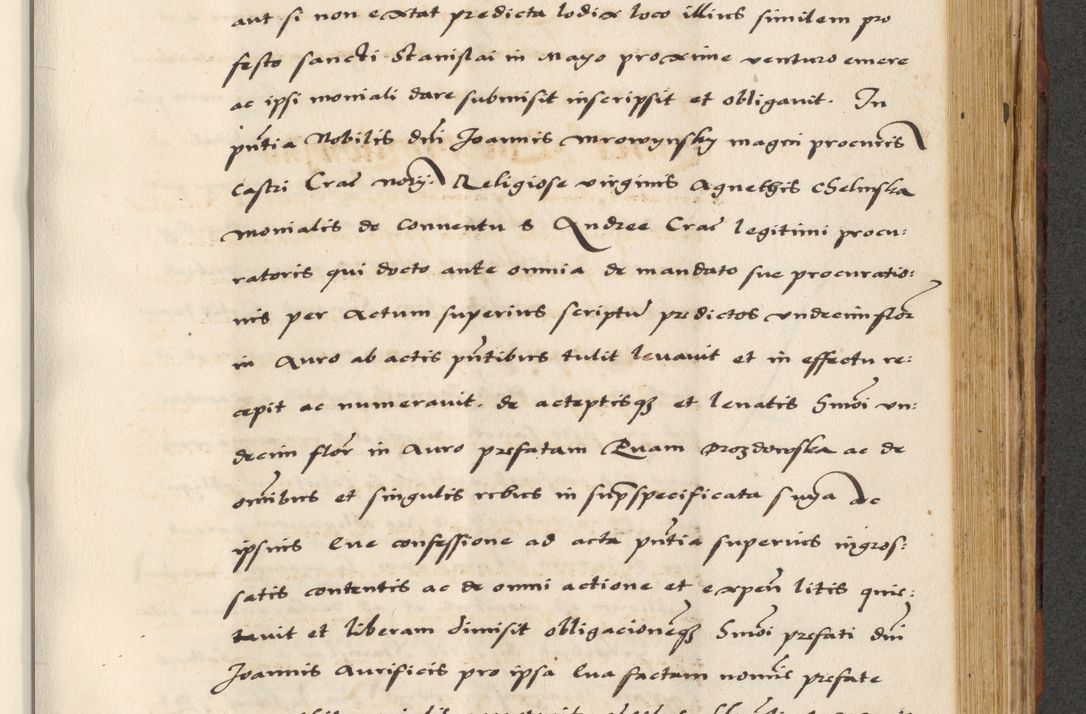 aut si non extat predicta lodix loco illius similem pro
festo sancti Stanislai in Mayo proxime venturo emere
ac ipsi moniali dare submisit inscripsit et obligavit. In
pn̄tia Nobilis dn̄i Joannis Mrowynsky magn̄i procur̄is
castri Crac̄ nōrij. Religiose virginis Agnethis Chelmska
monialis de conventu S Andree Crac̄ legitimi procu:
ratoris qui docto ante omnia de mandato sue procuratio:
nis per Actum superius scriptū predictos undecim flor̄
in Auro ab actis pn̄tibus tulit levavit et in effectu re:
cepit ac numeravit. de acceptisqꝫ et levatis hm̄oi un:
decim flor̄ in Auro prefatam Evam Drozdowska ac de
om̄ibus et singulis rebus in sup̄specificata
ipsius Eve confessione ad acta pn̄tia superius ingros:
satis contentis ac de omni actione et expen̄ litis quie:
tavit et liberam dimisit obligacionēqꝫ hm̄oi prefati dn̄i
Joannis Aurificis pro ipsa Eva factam nom̄is prefate